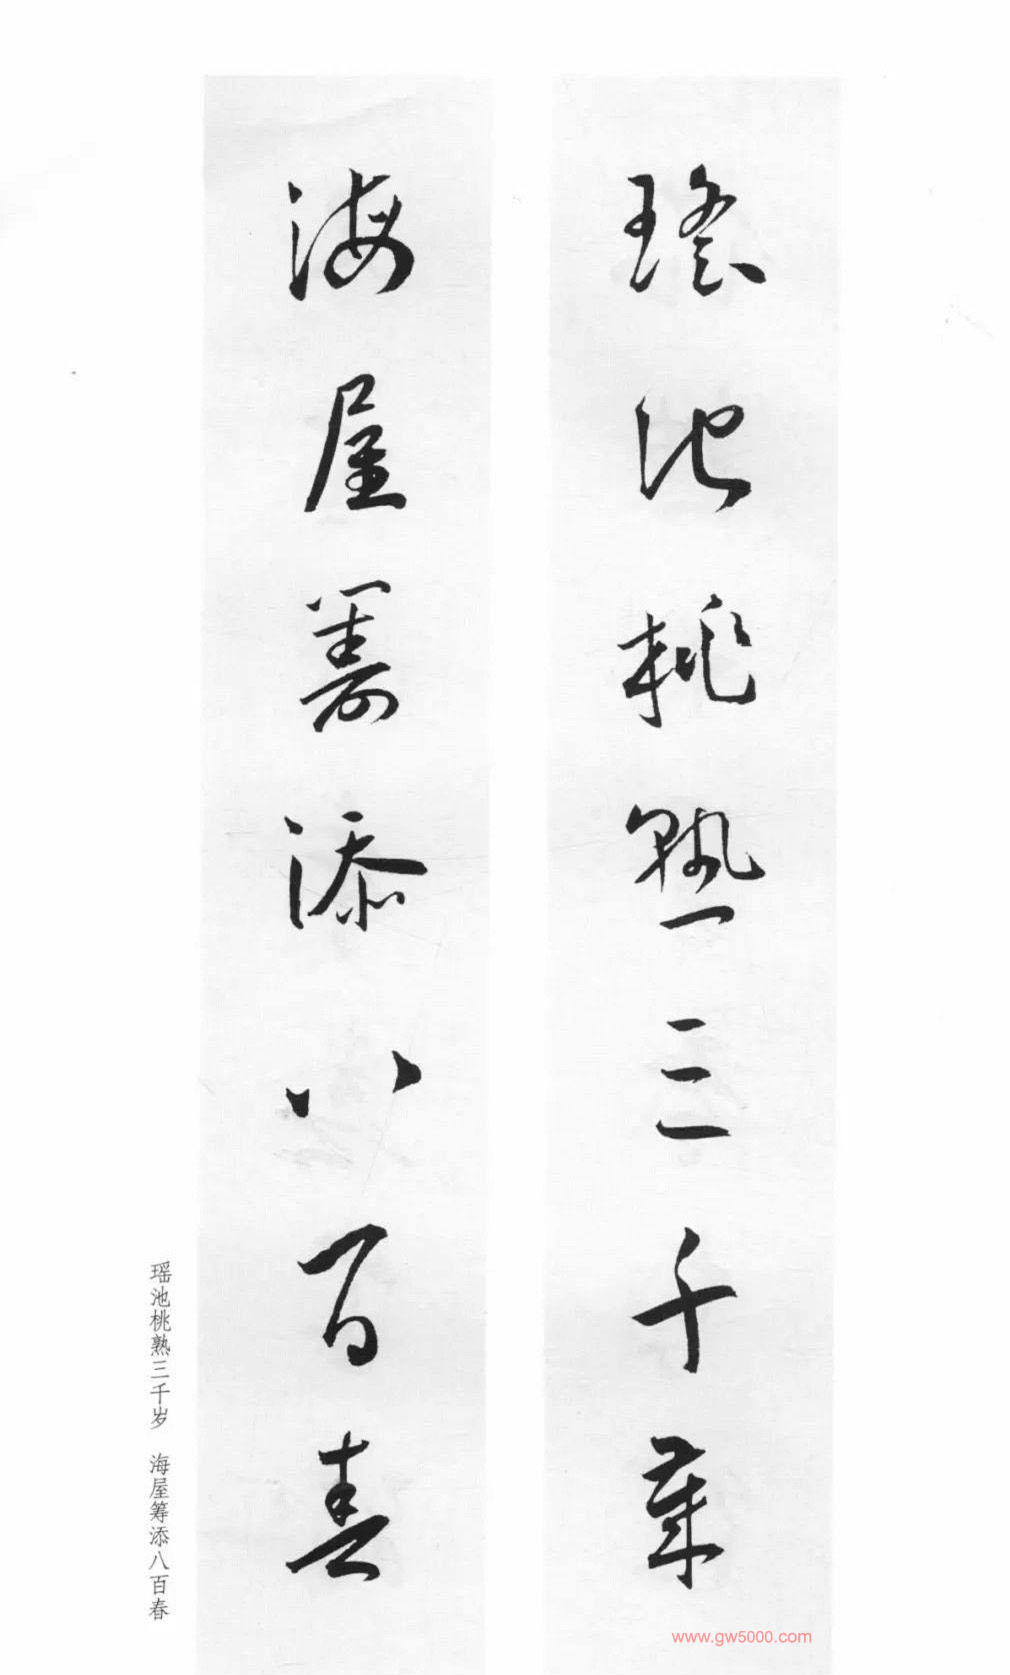 瑤池桃熟三千歲
海屋籌添八百春
瑶池桃熟三千岁 海屋筹添八百春
www.gw5000.com